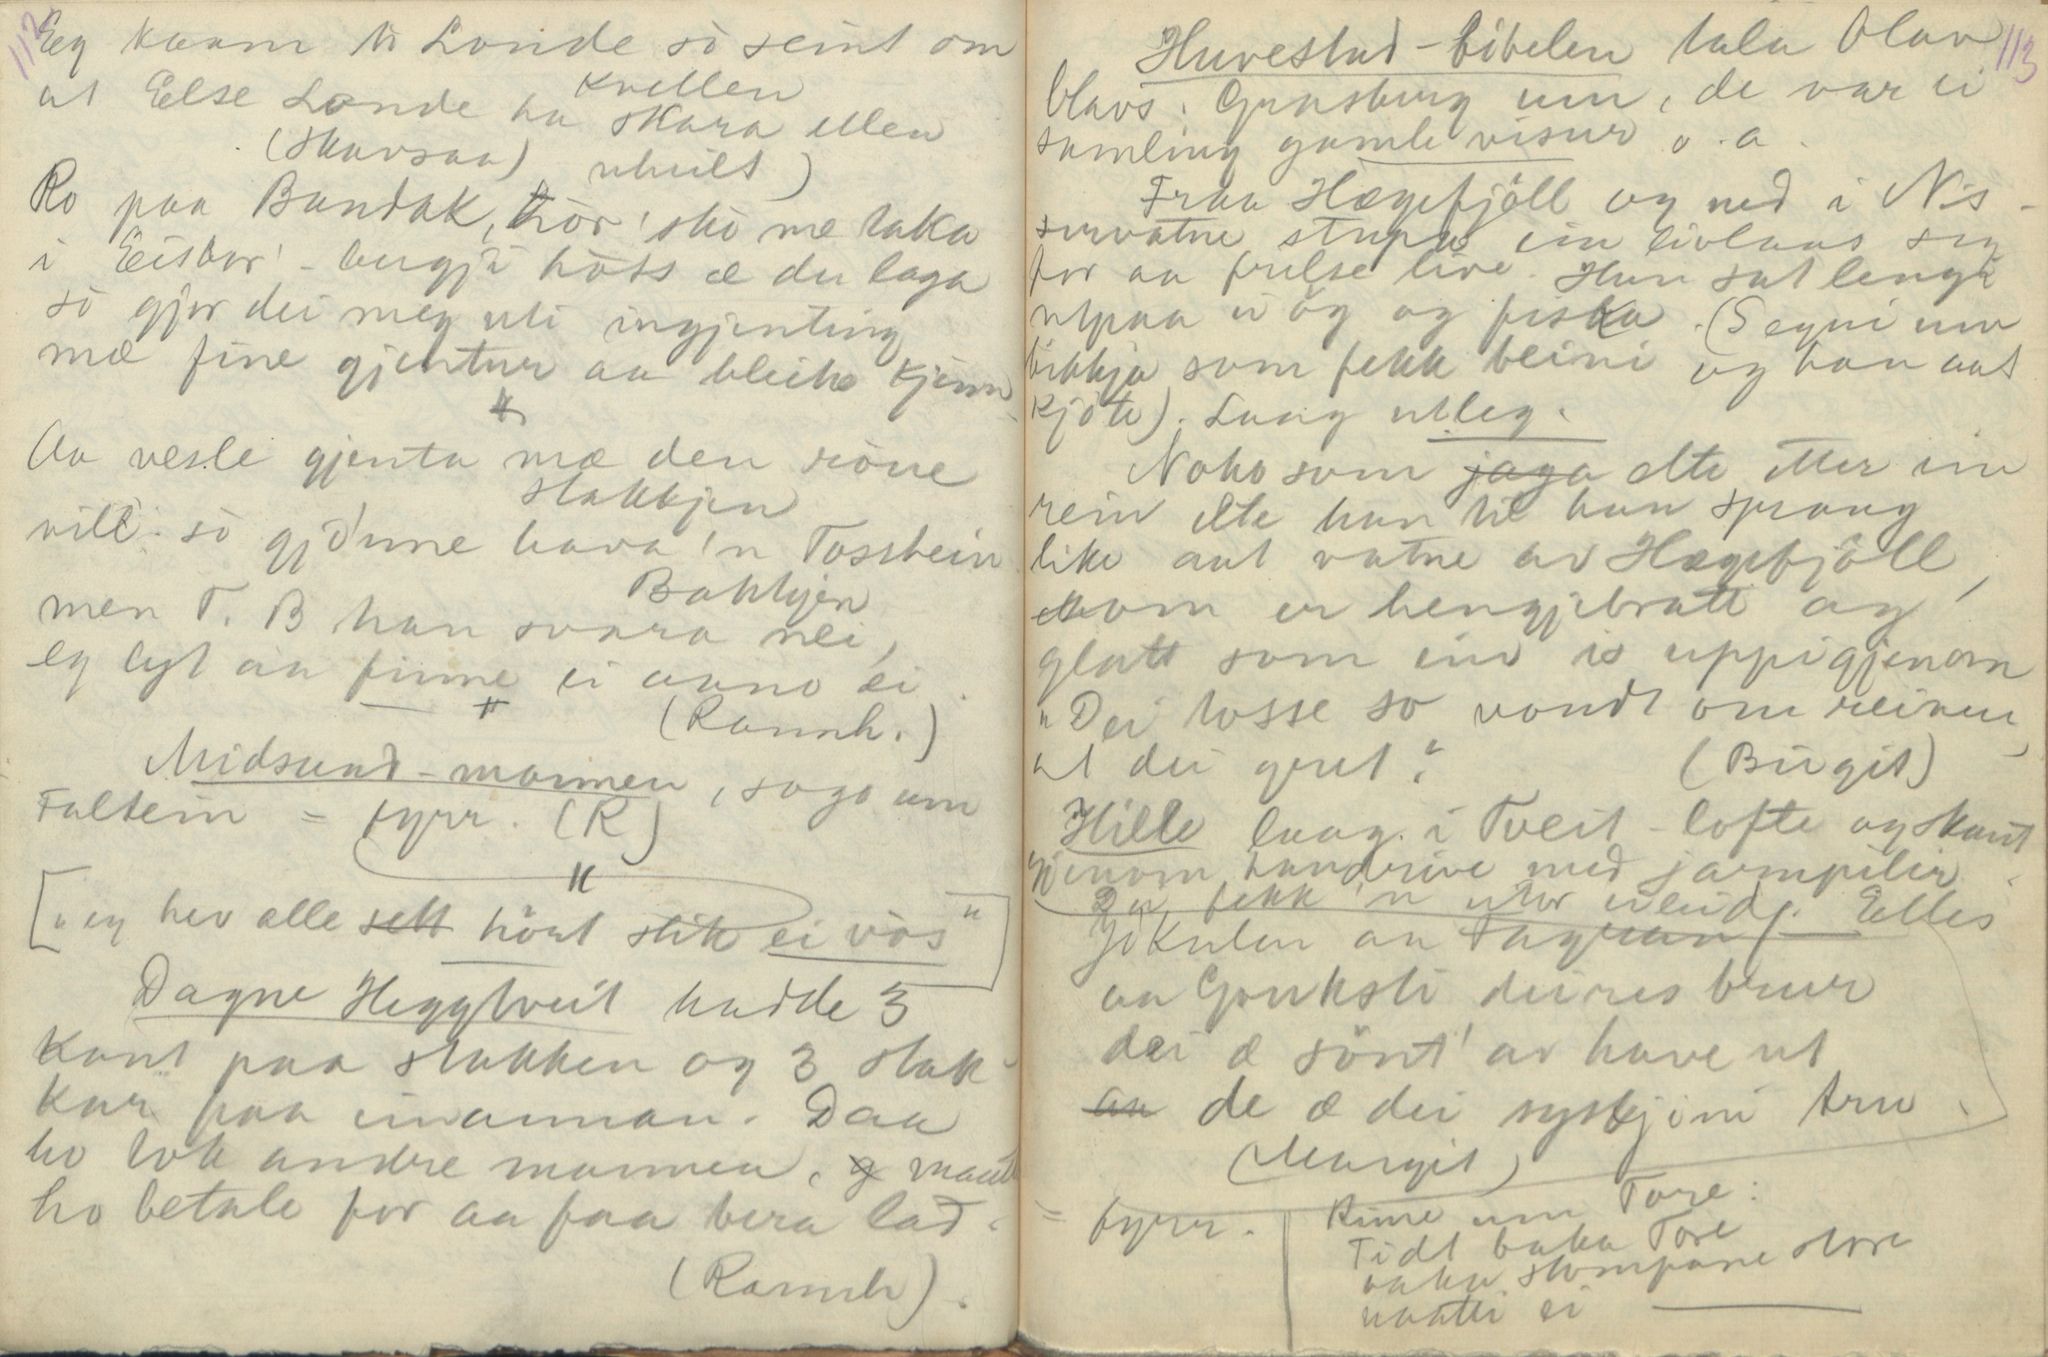 112
Eg kaam ti Londe so seint om
kvellen
at Eelse Londe ha skara ellen
(Skarsaa) uhuilt)
Ro paa Bandak, hör' sko me taka
i Eisbor'-bergji höss æ du laga
so gjer dei meg uti ingjenting
mæ fine gjentur aa bleike kjinn
"
Aa vesle gjenta mæ den röue
stakkjen
vill so gjönne hava 'n Tosstein
Bakkjen
men T. B han svara nei,
eg lyt aa finne ei aano ei.
" (Rannh.)
Midsund-mannen, soga um
Faltein = fyrr. (R)
"
["eg hev alle sett hört slik ei vos"]
Dagne Heggtveit hadde 3
kant paa stakken og 3 stak-
kar paa einannan. Daa
ho tok andre mannen, maatte
ho betale for aa faa bera lad.
(Rannh).
113
Huvestad-bibelen tala Olav
Olavs. Grasberg um, de var ei
samling gamle visur o. a.
Fraa Hægefjöll og ned i Nis-
servatne stupa ein livlaus seg
for aa frelse live. Han sat lengi
utpaa ei öy og fiska. (Segni um
bikkja som fekk beini og han aat
kjöte). Laag utleg.
Noko som jaga elte etter ein
rein elte han til han sprang
like aat vatne av Hægefjöll,
som er hengjebratt og
glatt som ein is uppigjenom
"Dei tosse so vondt om reinen,
at dei gret." (Birgit)
Hille laag i Tveit-lofte og skaut
gjenom handrive med jarnpilir.
Da fekk 'n utor eileidf. Elles
Jökulen aa Fagran
aa Gonksti deires brur
dei æ sönt' av have ut
aa de æ dei syskjini tru.
(Margit)
= fyrr.
Rime um Tore:
Tidt baka Tore
baka stompane store
naatti ei